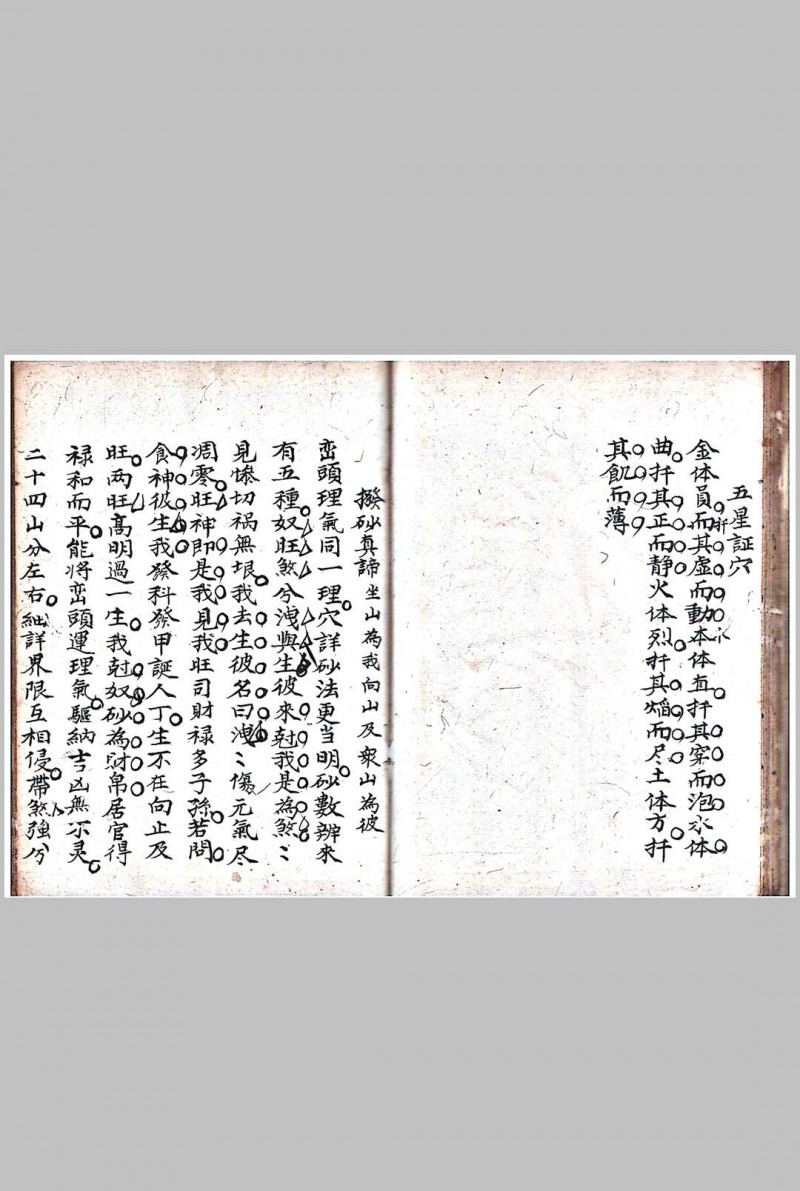 五星証穴
金体員而扦其虚而動木体直扦其窄而泡水体
曲扦其正而静火体烈扦其焰而尽土体方扦
其飢而薄
撥砂真諦坐山為我向山及衆山為彼
峦頭理氣同一理穴詳砂法更当明砂數辨來
有五種奴旺煞兮洩與生彼來尅我是為煞〻
見惨切祸無垠我去生彼名曰洩〻傷元氣尽
凋零旺神即是我見我旺司財禄多子孫若問
食神彼生我發科發甲誕人丁生不在向止及
旺两旺髙明過一生我尅奴砂為财帛居官得
禄和而平能將峦頭運理氣驅納吉凶無不灵
二十四山分左右細詳界限互相侵帶煞強兮